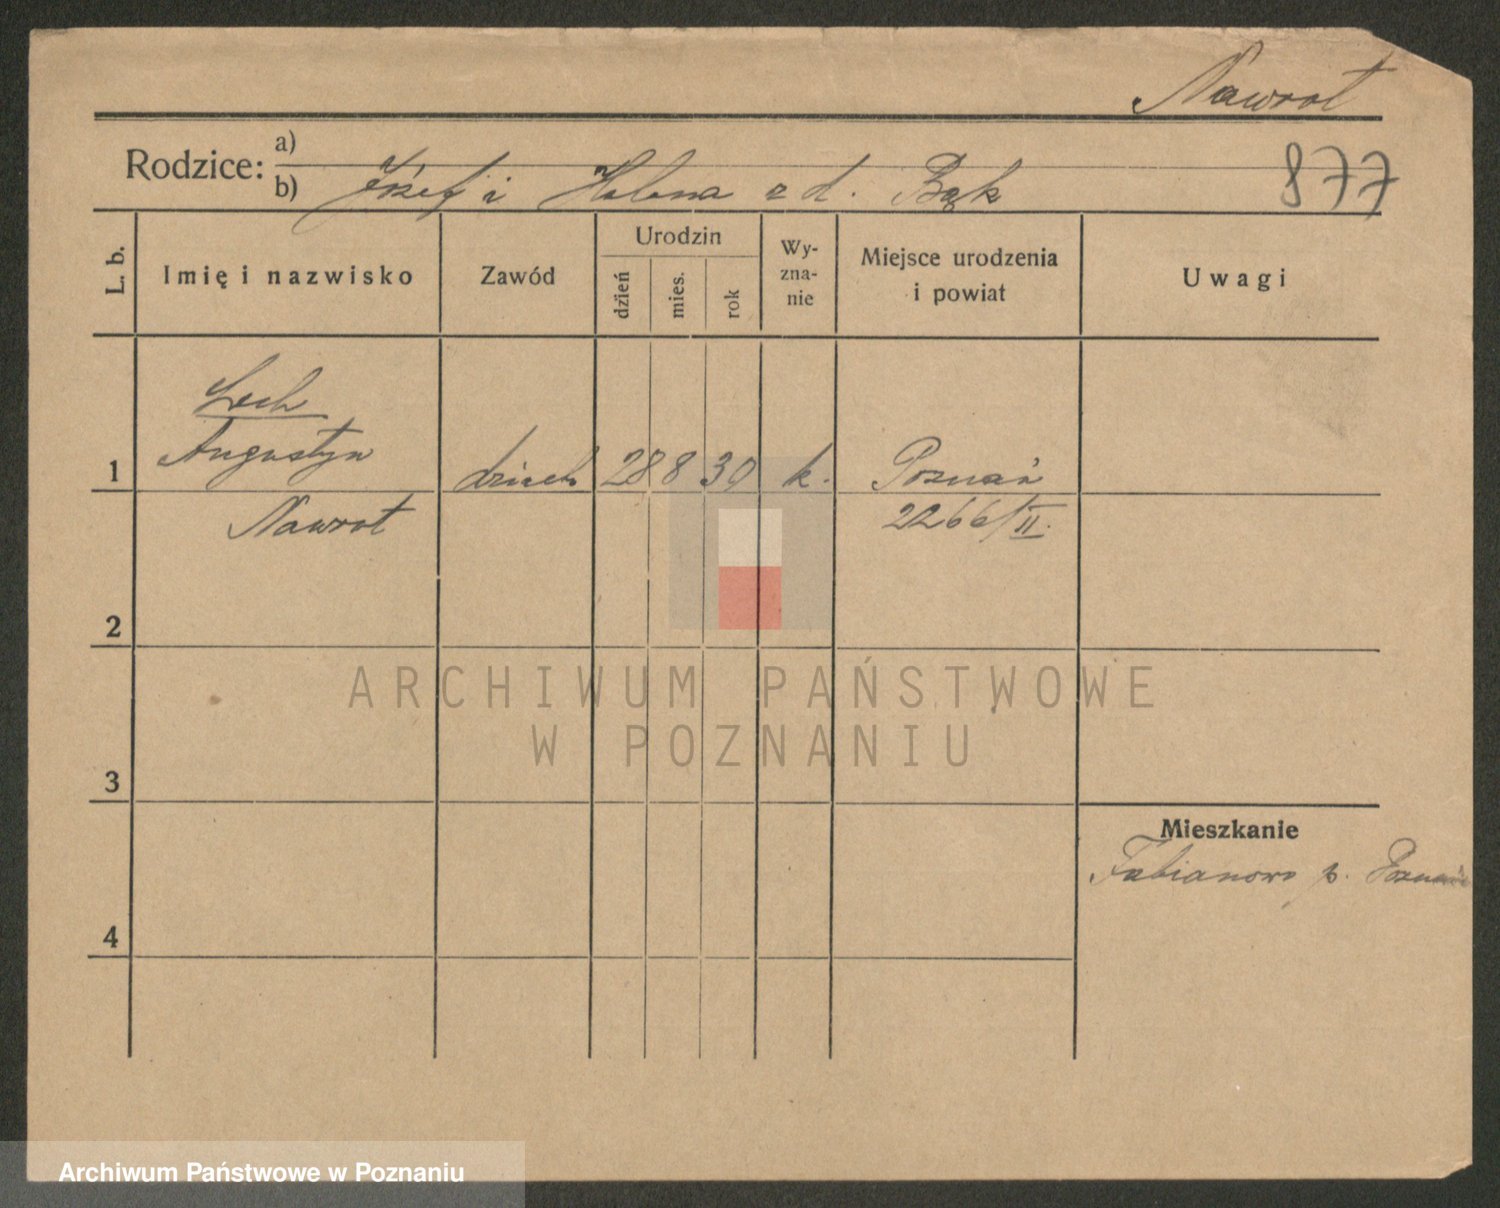 Nawrot
Rodzice: a)
b) Józef i Helena z d. Bąk
877
L. b.
Imię i nazwisko
Zawód
Urodzin
dzień
mies.
rok
Wy-
zna-
nie
Miejsce urodzenia
i powiat
Uwagi
Lech
Augustyn
1 dziech 28 8 30 k. Poznań
Nawrot 2266/II.
2
3
Mieszkanie
Fabianowo p. Poznań
4
ARCHIWUM PAŃSTWOWE
W POZNANIU
Archiwum Państwowe w Poznaniu